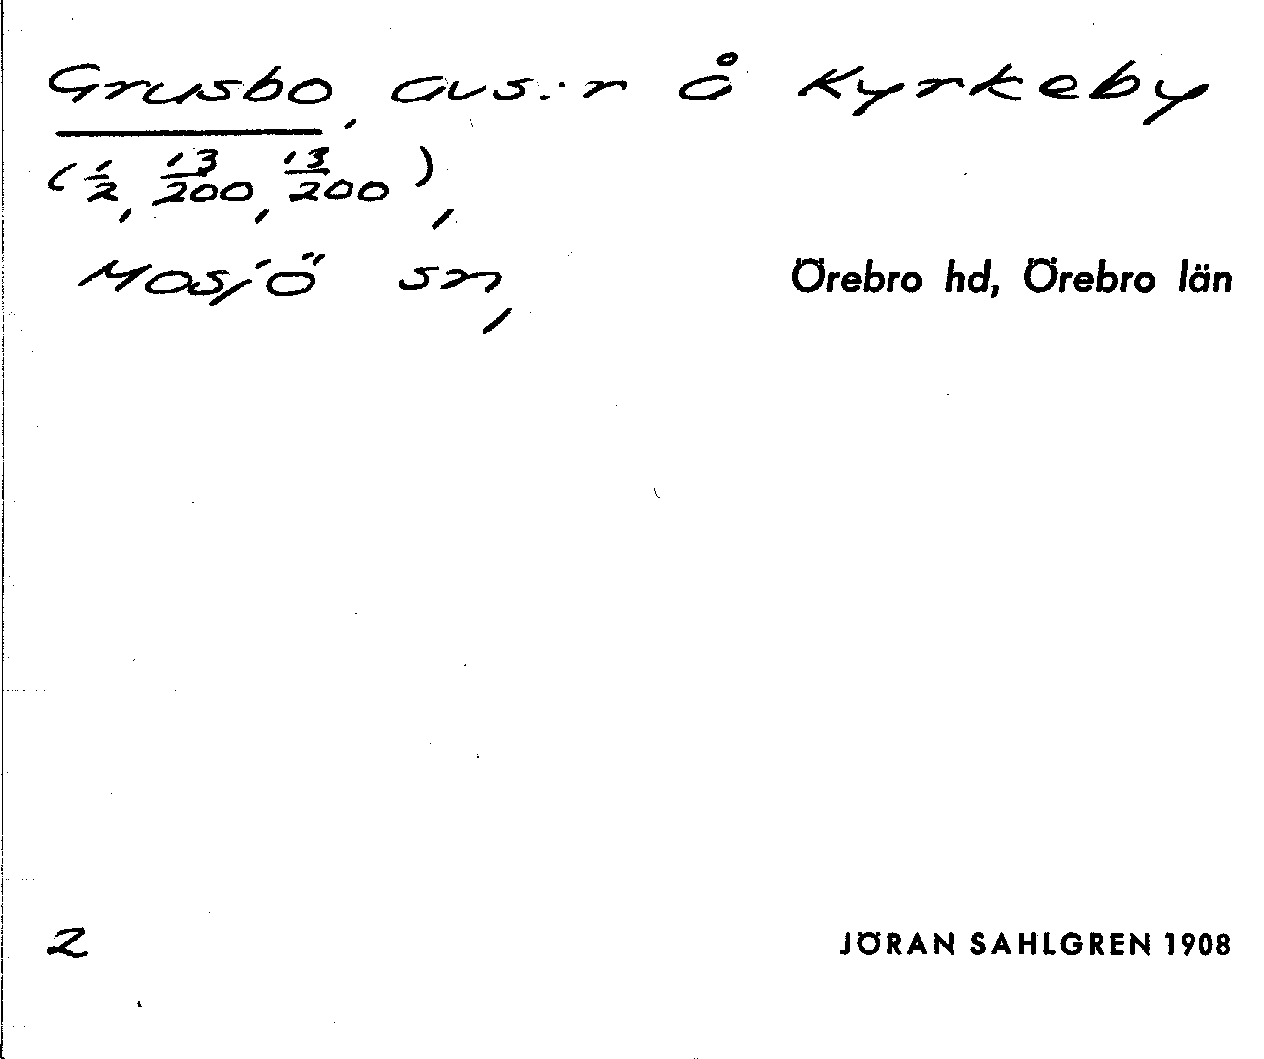 Grusbo, avs:r å Kyrkeby
(1/2, 13/200, 13/200),
Mosjö sn, Örebro hd, Örebro län
2 JÖRAN SAHLGREN 1908